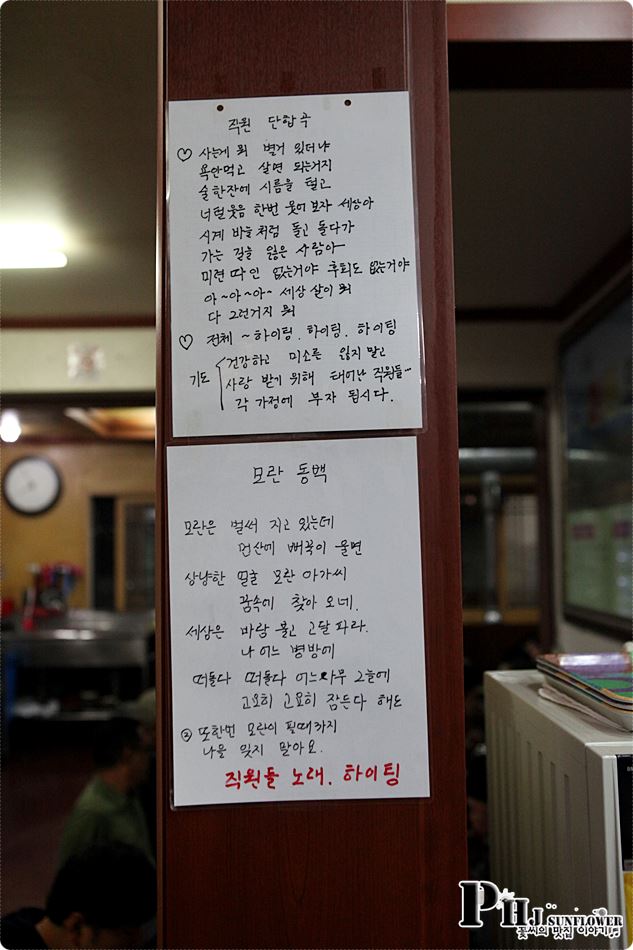 직원 단합곡
♡ 사는게 뭐 별거 있더냐
욕안먹고 살면 되는거지
술 한잔에 시름을 털고
너털웃음 한번 웃어보자 세상아
시계 바늘처럼 돌고 돌다가
가는 길을 잃은 사람아
미련 따 인 없는거야 후회도 없는거야
아~아~아~ 세상 살이 뭐
다 그런거지 뭐
♡ 전체 ~ 하이팅. 하이팅. 하이팅
기도
건강하고 미소를 잃지 말고
사랑 받기 위해 태어난 직원들…
각 가정에 부자 됩시다.
모란 동백
모란은 벌써 지고 있는데
먼산에 뻐꾹이 울면
상냥한 얼굴 모란 아가씨
꿈속에 찾아 오네.
세상은 바람 불고 고달파라.
나 어느 병방에
떠돌다 떠돌다 어느나무 그늘에
고요히 고요히 잠든다 해도
② 또한번 모란이 필때까지
나를 잊지 말아요.
직원들 노래. 하이팅
PHJ SUNFLOWER
꽃씨의 맛집 이야기